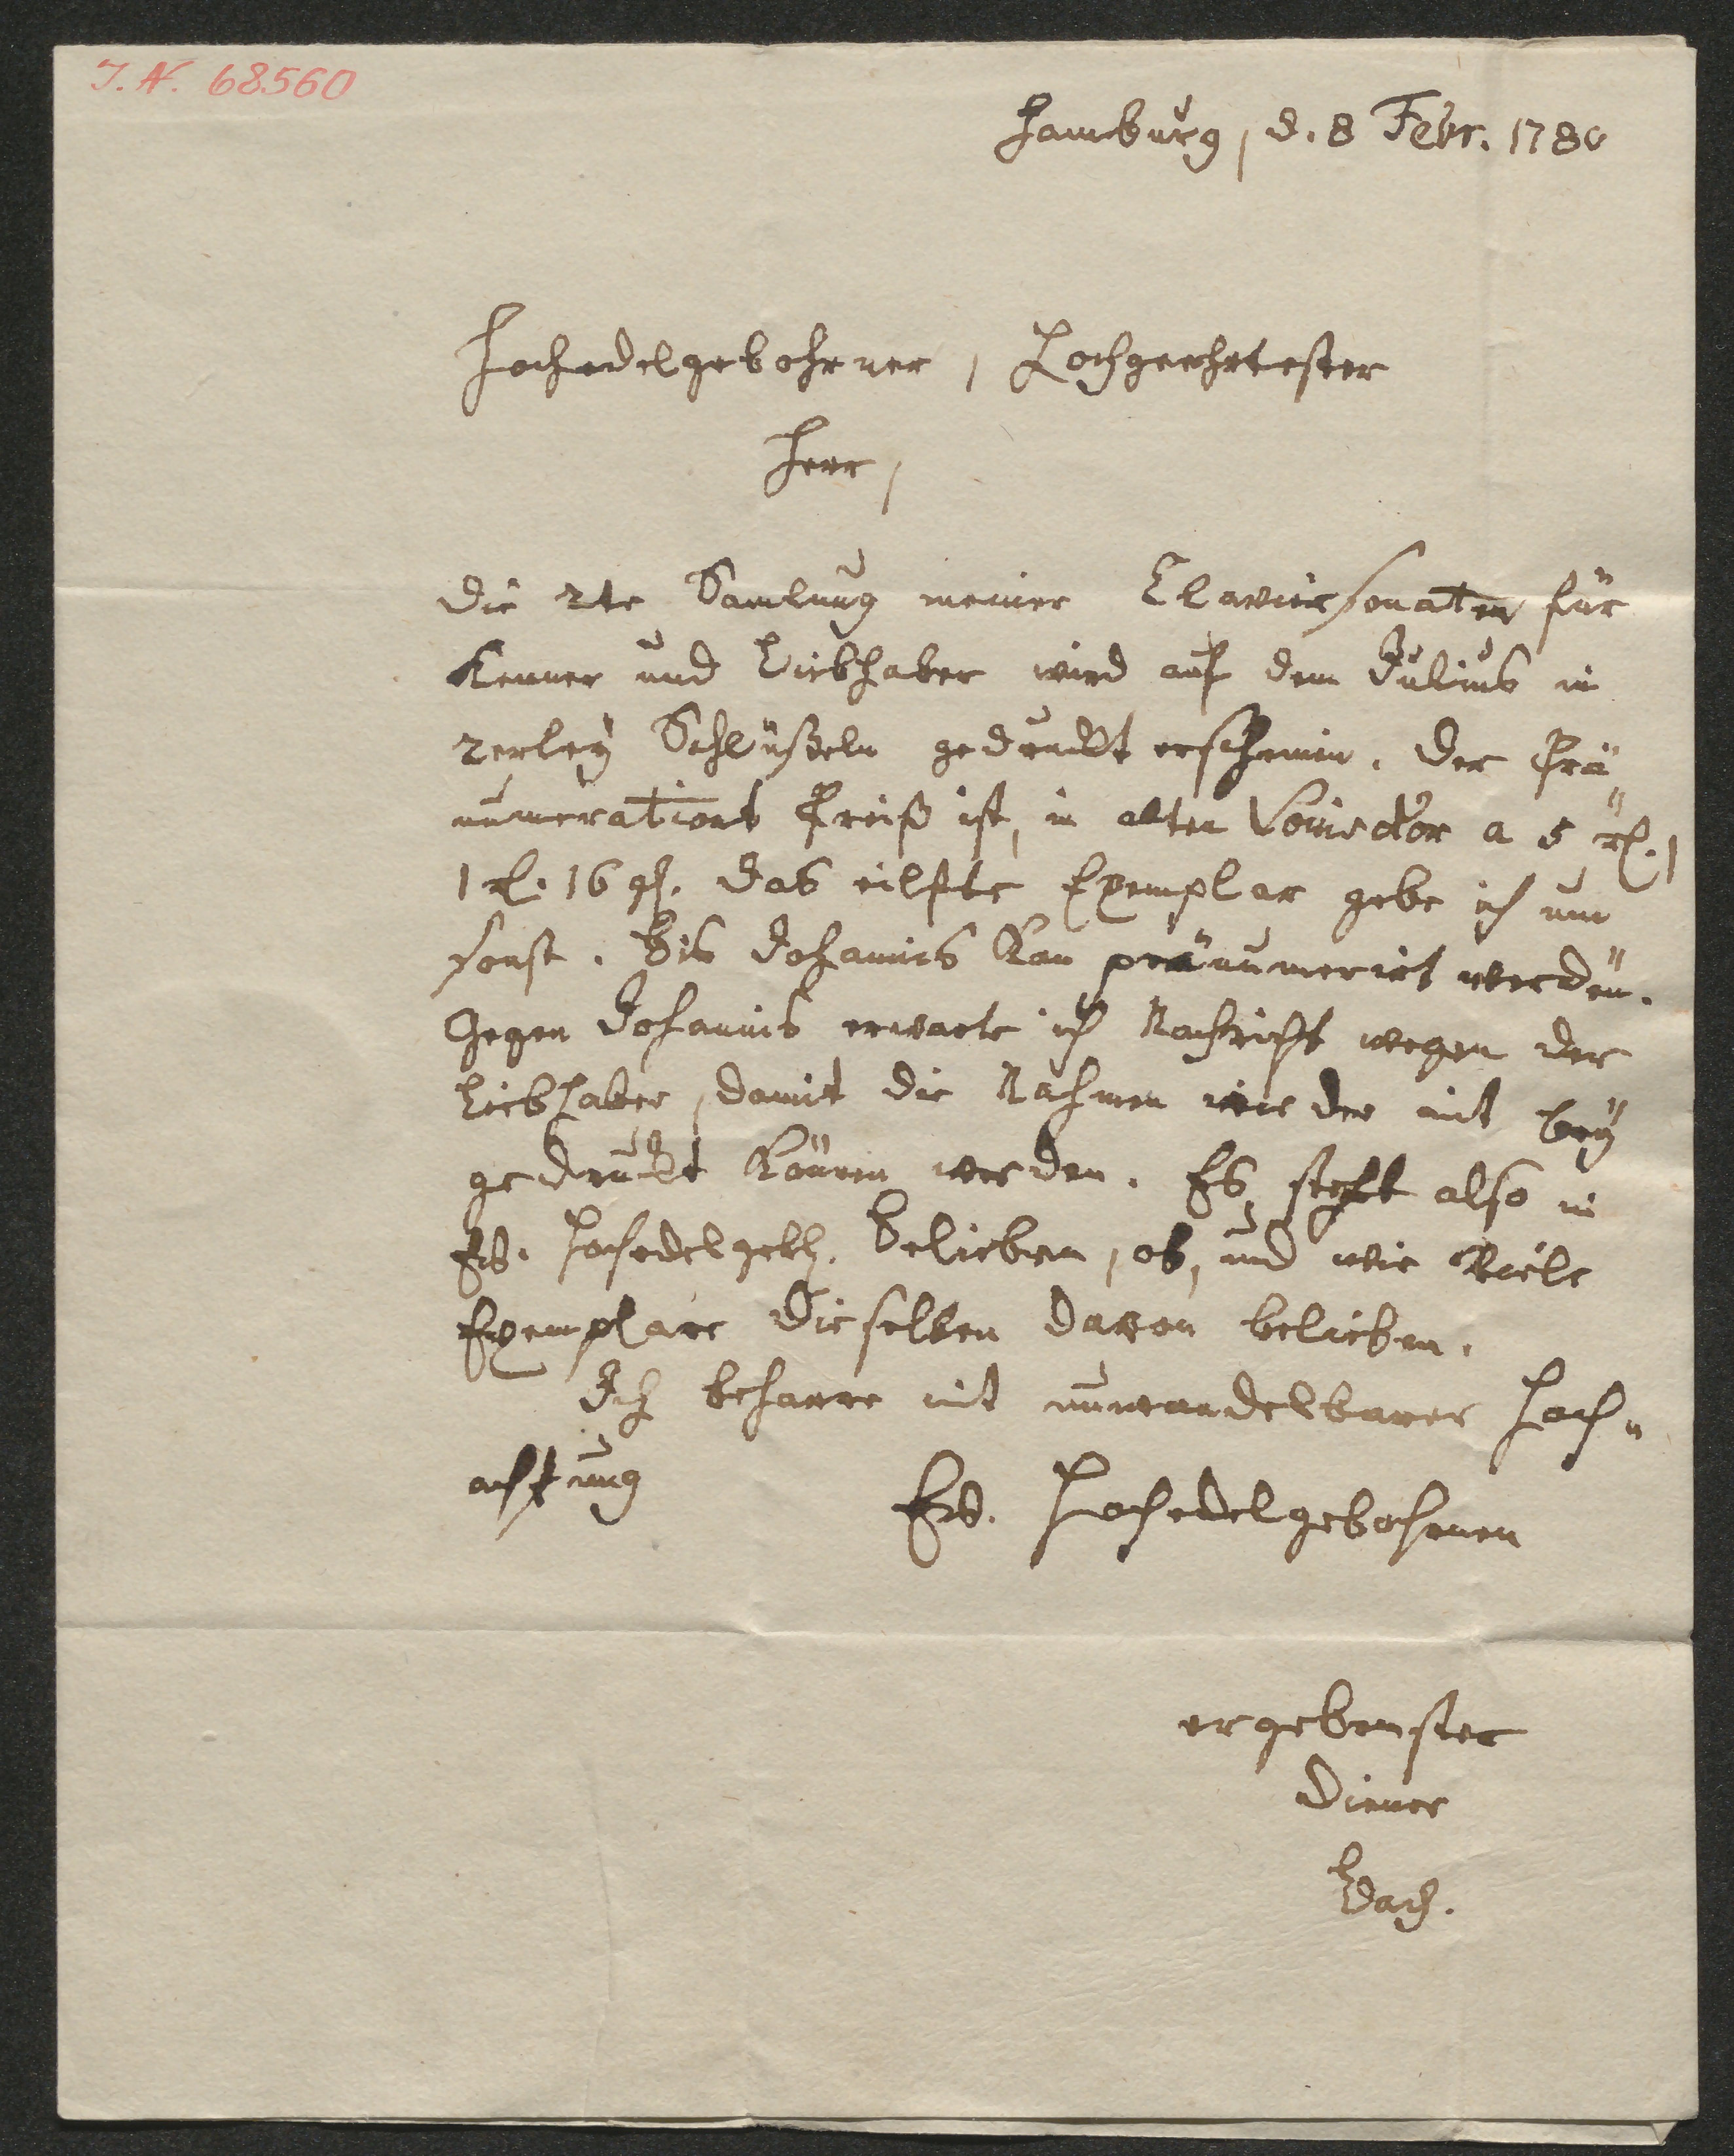 I.N. 68560
Hamburg, d. 8 Febr. 1780
Hochedelgebohrner, Hochgeehrtester
Herr,
Die 2te Samlung meiner Claviersonaten für
Kenner und Liebhaber wird auf den Julius in
2erley Schlüßeln gedruckt erscheinen. Der Prä„
numerations Preiß ist, in alten Louisd'or a 5 rl.,
1 rl. 16 gl. Das eilfte Exemplar gebe ich um„
sonst. Bis Johannis kan pränumerirt werden.
Gegen Johannis erwarte ich Nachricht wegen der
Liebhaber, damit die Nahmen wieder mit bey„
gedruckt können werden. Es steht also in
Ew. Hochedelgebh. Belieben, ob, und wie viele
Exemplare Dieselben davon belieben.
Ich beharre mit unwandelbarer Hoch„
achtung
Ew. Hochedelgebohrnen
ergebenster
Diener
Bach.